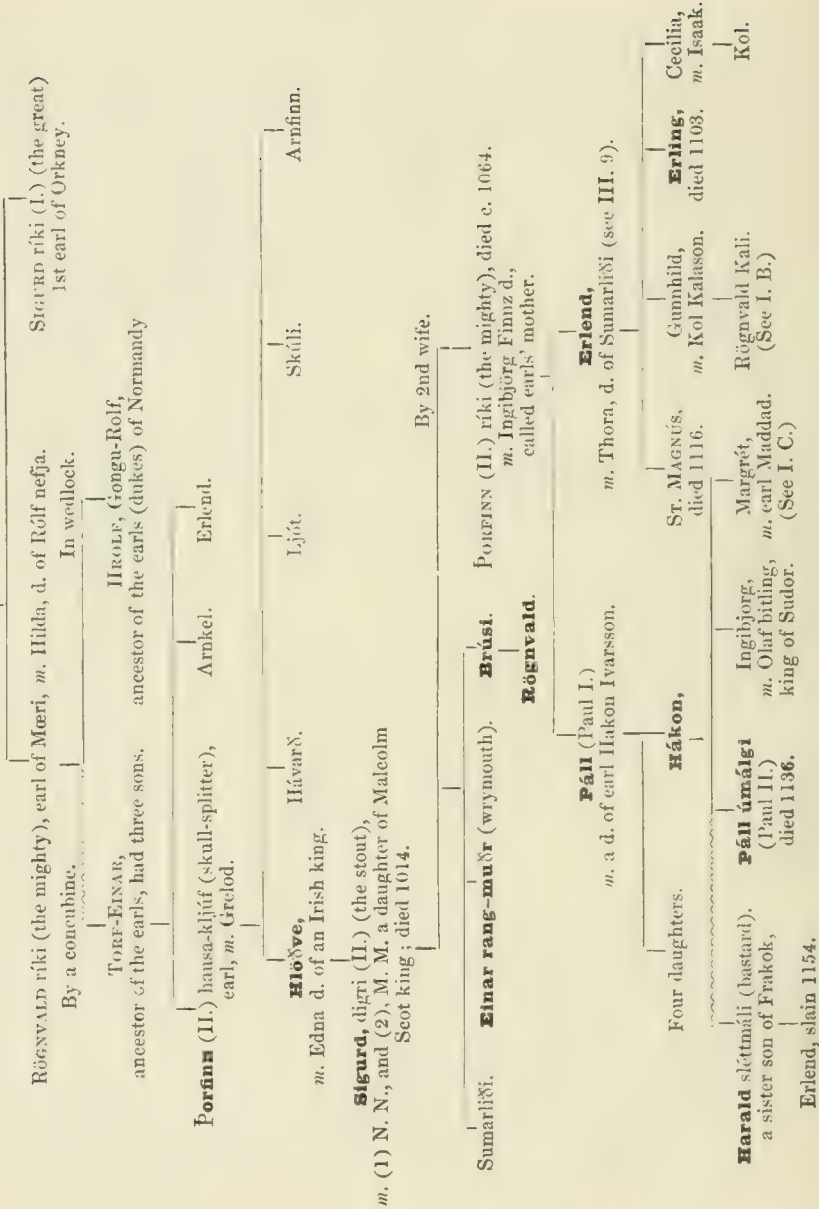 RÖGNVALD ríki (the mighty), earl of Mœri, m. Hilda, d. of Rúlf nefja.
SIGURD ríki (I.) (the great)
1st earl of Orkney.
By a concubine.
In wedlock.
TORF-EINAR,
ancestor of the earls, had three sons.
HROLF, Gongu-Rolf,
ancestor of the earls (dukes) of Normandy
Þorfinn (II.) hausa-kljúf (skull-splitter),
earl, m. Grelod.
Arnkel.
Erlend.
Hlöðve,
m. Edna d. of an Irish king.
Hávarð.
Ljót.
Skúli.
Arnfinn.
Sigurd, digri (II.) (the stout),
m. (1) N. N., and (2), M. M. a daughter of Malcolm
Scot king ; died 1014.
By 2nd wife.
Sumarliði.
Einar rang-muðr (wrymouth).
Brúsi.
ÞORFINN (II.) ríki (the mighty), died c. 1064.
m. Ingibjörg Finnz d.,
called earls' mother.
Rögnvald.
Páll (Paul I.)
m. a d. of earl Hakon Ivarsson.
Erlend,
m. Thora, d. of Sumarliði (see III. 9).
Four daughters.
Hákon,
ST. MAGNÚS,
died 1116.
Gunnhild,
m. Kol Kalason.
Erling,
died 1103.
Cecilia,
m. Isaak.
Rögnvald Kali.
(See I. B.)
Kol.
Harald sléttmáli (bastard).
a sister son of Frakok,
Páll úmálgi
(Paul II.)
died 1136.
Ingibjorg,
m. Olaf bitling,
king of Sudor.
Margrét,
m. earl Maddad.
(See I. C.)
Erlend, slain 1154.